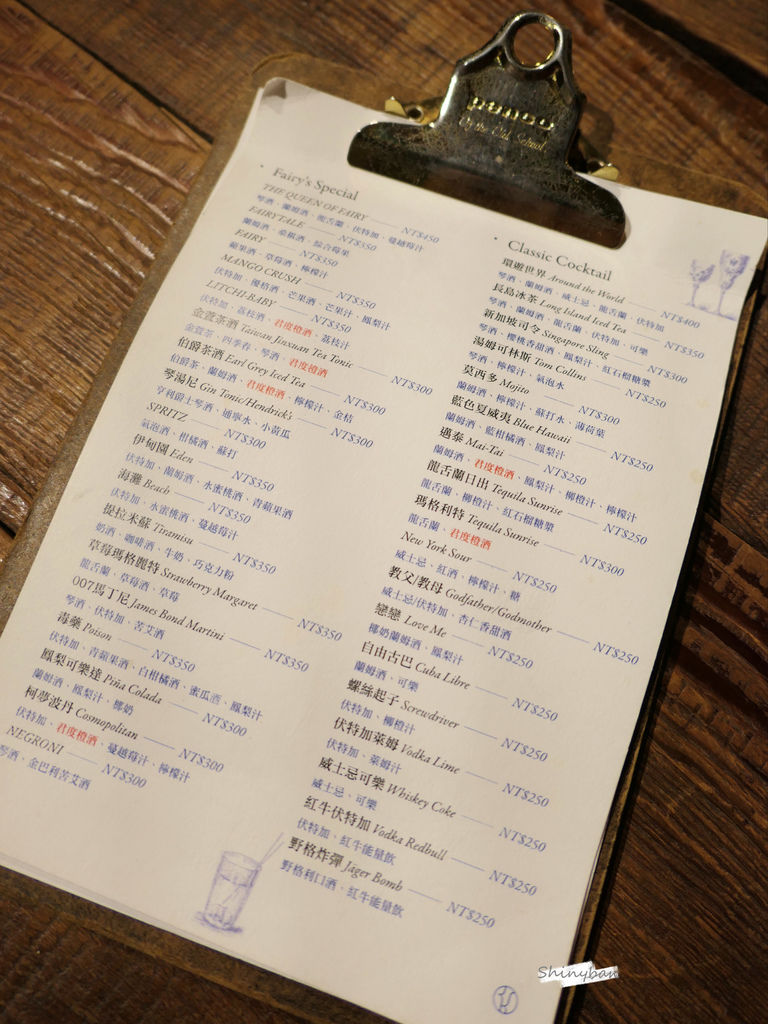 Of the Old School
Fairy's Special
THE QUEEN OF FAIRY NT$450
琴酒、蘭姆酒、龍舌蘭、伏特加、蔓越莓汁
FAIRYTALE NT$350
蘭姆酒、桑椹酒、綜合莓果
FAIRY NT$350
蘋果酒、草莓酒、檸檬汁
MANGO CRUSH NT$350
伏特加、優格酒、芒果酒、芒果汁、鳳梨汁
LITCHI-BABY NT$350
伏特加、荔枝酒、君度橙酒、荔枝汁
金萱茶酒 Taiwan Jinxuan Tea Tonic NT$300
金萱茶、四季春、琴酒、君度橙酒
伯爵茶酒 Earl Grey Iced Tea NT$300
伯爵茶、蘭姆酒、君度橙酒、檸檬汁、金桔
琴湯尼 Gin Tonic/Hendrick's NT$300
亨利爵士琴酒、通寧水、小黃瓜
SPRITZ NT$300
氣泡酒、柑橘酒、蘇打
伊甸園 Eden NT$350
伏特加、蘭姆酒、水蜜桃酒、青蘋果酒
海灘 Beach NT$350
伏特加、水蜜桃酒、蔓越莓汁
提拉米蘇 Tiramisu NT$350
奶酒、咖啡酒、牛奶、巧克力粉
草莓瑪格麗特 Strawberry Margaret NT$350
龍舌蘭、草莓酒、草莓
007馬丁尼 James Bond Martini NT$350
琴酒、伏特加、苦艾酒
毒藥 Poison NT$350
伏特加、青蘋果酒、白柑橘酒、蜜瓜酒、鳳梨汁
鳳梨可樂達 Piña Colada NT$300
蘭姆酒、鳳梨汁、椰奶
柯夢波丹 Cosmopolitan NT$300
伏特加、君度橙酒、蔓越莓汁、檸檬汁
NEGRONI NT$300
琴酒、金巴利苦艾酒
Classic Cocktail
環遊世界 Around the World NT$400
琴酒、蘭姆酒、威士忌、龍舌蘭、伏特加
長島冰茶 Long Island Iced Tea NT$350
琴酒、蘭姆酒、龍舌蘭、伏特加、可樂
新加坡司令 Singapore Sling NT$300
琴酒、櫻桃香甜酒、鳳梨汁、紅石榴糖漿
湯姆可林斯 Tom Collins NT$250
琴酒、檸檬汁、氣泡水
莫西多 Mojito NT$300
蘭姆酒、檸檬汁、蘇打水、薄荷葉
藍色夏威夷 Blue Hawaii NT$250
蘭姆酒、藍柑橘酒、鳳梨汁
邁泰 Mai-Tai NT$250
蘭姆酒、君度橙酒、鳳梨汁、柳橙汁、檸檬汁
龍舌蘭日出 Tequila Sunrise NT$250
龍舌蘭、柳橙汁、紅石榴糖漿
瑪格利特 Tequila Sunrise NT$300
龍舌蘭、君度橙酒
New York Sour NT$250
威士忌、紅酒、檸檬汁、糖
教父/教母 Godfather/Godmother NT$250
威士忌/伏特加、杏仁香甜酒
戀戀 Love Me NT$250
椰奶蘭姆酒、鳳梨汁
自由古巴 Cuba Libre NT$250
蘭姆酒、可樂
螺絲起子 Screwdriver NT$250
伏特加、柳橙汁
伏特加萊姆 Vodka Lime NT$250
伏特加、萊姆汁
威士忌可樂 Whiskey Coke NT$250
威士忌、可樂
紅牛伏特加 Vodka Redbull NT$250
伏特加、紅牛能量飲
野格炸彈 Jäger Bomb NT$250
野格利口酒、紅牛能量飲
Shinyban